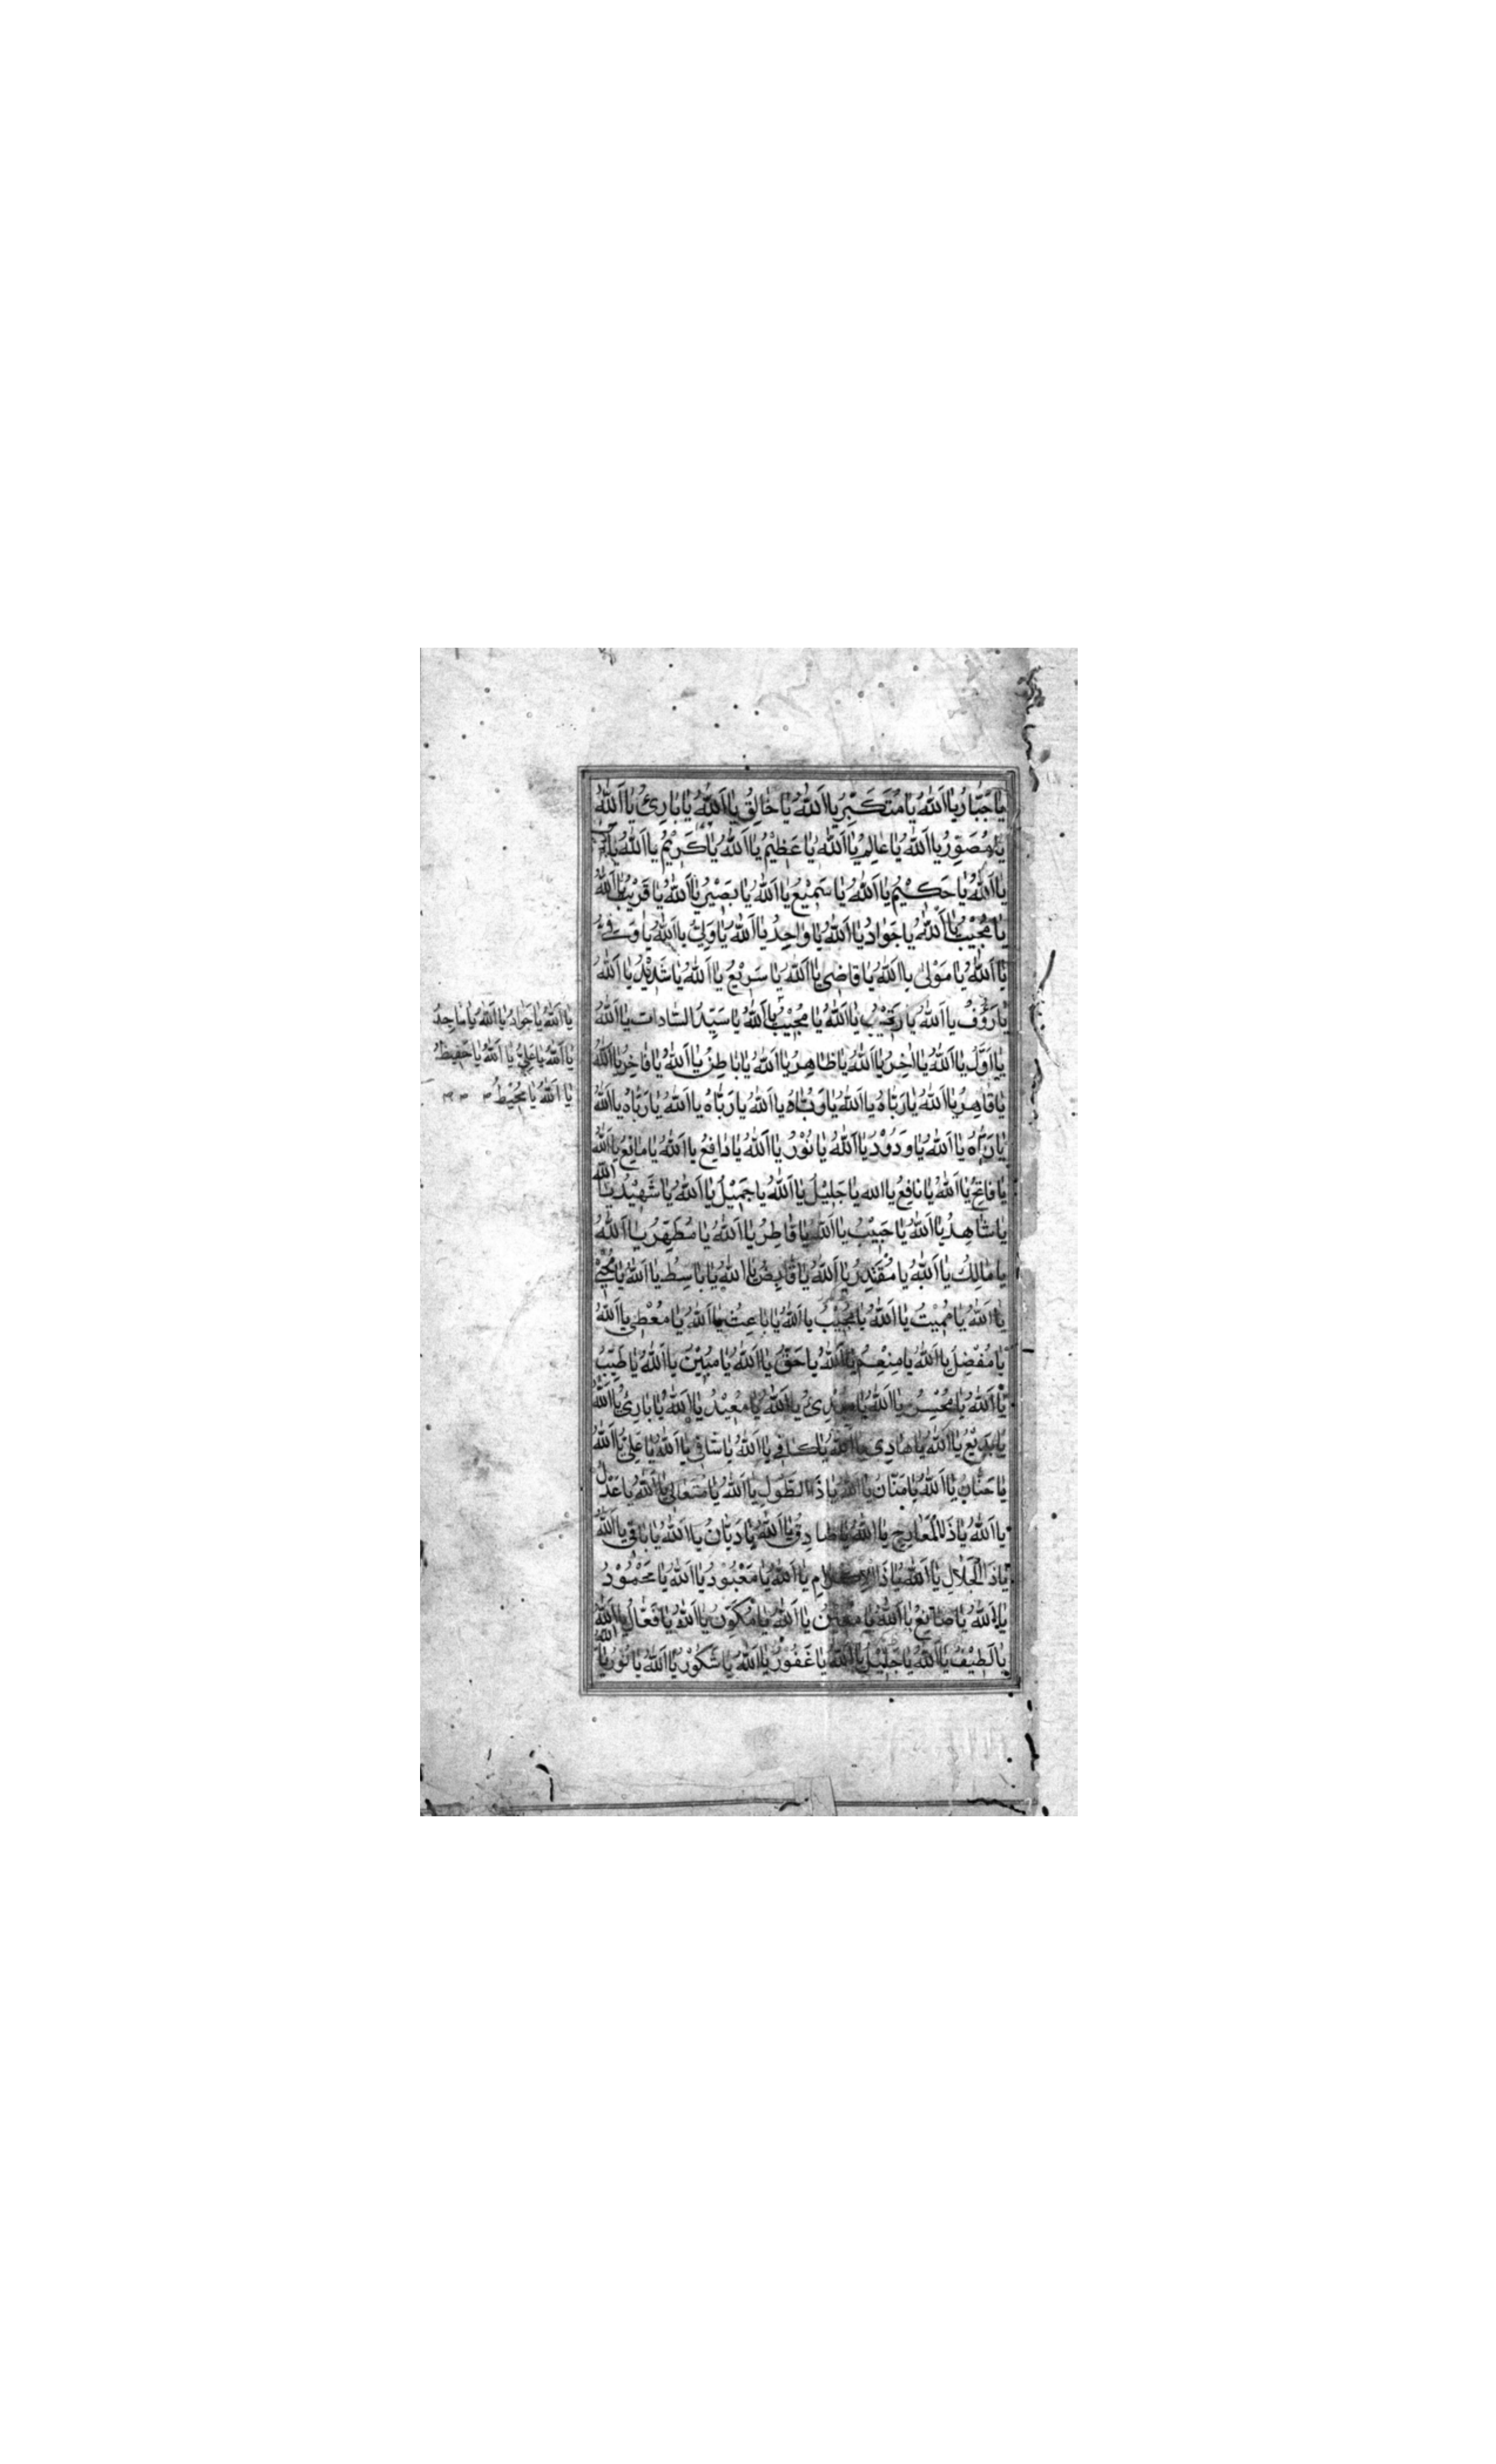 يَا جَبَّارُ يَا اَللّٰهُ يَا مُتَكَبِّرُ يَا اَللّٰهُ يَا خَالِقُ يَا اَللّٰهُ يَا بَارِئُ يَا اَللّٰهُ
يَا مُصَوِّرُ يَا اَللّٰهُ يَا عَالِمُ يَا اَللّٰهُ يَا عَظِيْمُ يَا اَللّٰهُ يَا كَرِيْمُ يَا اَللّٰهُ
يَا اَللّٰهُ يَا حَكِيْمُ يَا اَللّٰهُ يَا سَمِيْعُ يَا اَللّٰهُ يَا بَصِيْرُ يَا اَللّٰهُ يَا قَرِيْبُ يَا اَللّٰهُ
يَا مُجِيْبُ يَا اَللّٰهُ يَا جَوَادُ يَا اَللّٰهُ يَا وَاجِدُ يَا اَللّٰهُ يَا وَلِيُّ يَا اَللّٰهُ يَا وَفِيُّ
يَا اَللّٰهُ يَا مَوْلٰى يَا اَللّٰهُ يَا قَاضِي يَا اَللّٰهُ يَا سَرِيْعُ يَا اَللّٰهُ يَا شَدِيْدُ يَا اَللّٰهُ
يَا رَؤُفُ يَا اَللّٰهُ يَا رَقِيْبُ يَا اَللّٰهُ يَا مُجِيْبُ يَا اَللّٰهُ يَا سَيِّدُ السَّادَاتِ يَا اَللّٰهُ
يَا اَوَّلُ يَا اَللّٰهُ يَا اٰخِرُ يَا اَللّٰهُ يَا ظَاهِرُ يَا اَللّٰهُ يَا بَاطِنُ يَا اَللّٰهُ يَا فَاخِرُ يَا اَللّٰهُ
يَا قَاهِرُ يَا اَللّٰهُ يَا رَبَّاهُ يَا اَللّٰهُ يَا رَبَّاهُ يَا اَللّٰهُ يَا رَبَّاهُ يَا اَللّٰهُ يَا رَبَّاهُ يَا اَللّٰهُ
يَا رَبَّاهُ يَا اَللّٰهُ يَا وَدُوْدُ يَا اَللّٰهُ يَا نُوْرُ يَا اَللّٰهُ يَا دَافِعُ يَا اَللّٰهُ يَا مَانِعُ يَا اَللّٰهُ
يَا فَاتِحُ يَا اَللّٰهُ يَا نَافِعُ يَا اَللّٰهُ يَا جَلِيْلُ يَا اَللّٰهُ يَا جَمِيْلُ يَا اَللّٰهُ يَا شَهِيْدُ يَا اَللّٰهُ
يَا شَاهِدُ يَا اَللّٰهُ يَا حَبِيْبُ يَا اَللّٰهُ يَا فَاطِرُ يَا اَللّٰهُ يَا مُطَهِّرُ يَا اَللّٰهُ
يَا مَالِكُ يَا اَللّٰهُ يَا مُقْتَدِرُ يَا اَللّٰهُ يَا قَابِضُ يَا اَللّٰهُ يَا بَاسِطُ يَا اَللّٰهُ يَا مُحْيِيْ
يَا اَللّٰهُ يَا مُمِيْتُ يَا اَللّٰهُ يَا مُجِيْبُ يَا اَللّٰهُ يَا بَاعِثُ يَا اَللّٰهُ يَا مُعْطِي يَا اَللّٰهُ
يَا مُفَضِّلُ يَا اَللّٰهُ يَا مُنْعِمُ يَا اَللّٰهُ يَا حَقُّ يَا اَللّٰهُ يَا مُبِيْنُ يَا اَللّٰهُ يَا طَيِّبُ
يَا اَللّٰهُ يَا مُحْسِنُ يَا اَللّٰهُ يَا مُبْدِئُ يَا اَللّٰهُ يَا مُعِيْدُ يَا اَللّٰهُ يَا بَارِئُ يَا اَللّٰهُ
يَا بَدِيْعُ يَا اَللّٰهُ يَا هَادِي يَا اَللّٰهُ يَا كَافِي يَا اَللّٰهُ يَا شَافِي يَا اَللّٰهُ يَا عَلِيُّ يَا اَللّٰهُ
يَا حَنَّانُ يَا اَللّٰهُ يَا مَنَّانُ يَا اَللّٰهُ يَا ذَا الطَّوْلِ يَا اَللّٰهُ يَا مُتَعَالِي يَا اَللّٰهُ يَا عَدْلُ
يَا اَللّٰهُ يَا ذَا الْمَعَارِجِ يَا اَللّٰهُ يَا صَادِقُ يَا اَللّٰهُ يَا دَيَّانُ يَا اَللّٰهُ يَا بَاقِي يَا اَللّٰهُ
يَا ذَا الْجَلَالِ يَا اَللّٰهُ يَا ذَا الْاِكْرَامِ يَا اَللّٰهُ يَا مَعْبُوْدُ يَا اَللّٰهُ يَا مَحْمُوْدُ
يَا اَللّٰهُ يَا صَانِعُ يَا اَللّٰهُ يَا مُعِيْنُ يَا اَللّٰهُ يَا مُكَوِّنُ يَا اَللّٰهُ يَا فَعَّالُ يَا اَللّٰهُ
يَا لَطِيْفُ يَا اَللّٰهُ يَا جَلِيْلُ يَا اَللّٰهُ يَا غَفُوْرُ يَا اَللّٰهُ يَا شَكُوْرُ يَا اَللّٰهُ يَا نُوْرُ يَا اَللّٰهُ
يَا اَللّٰهُ يَا جَوَادُ يَا اَللّٰهُ يَا مَاجِدُ
يَا اَللّٰهُ يَا عَلِيُّ يَا اَللّٰهُ يَا حَفِيْظُ
يَا اَللّٰهُ يَا مُحِيْطُ